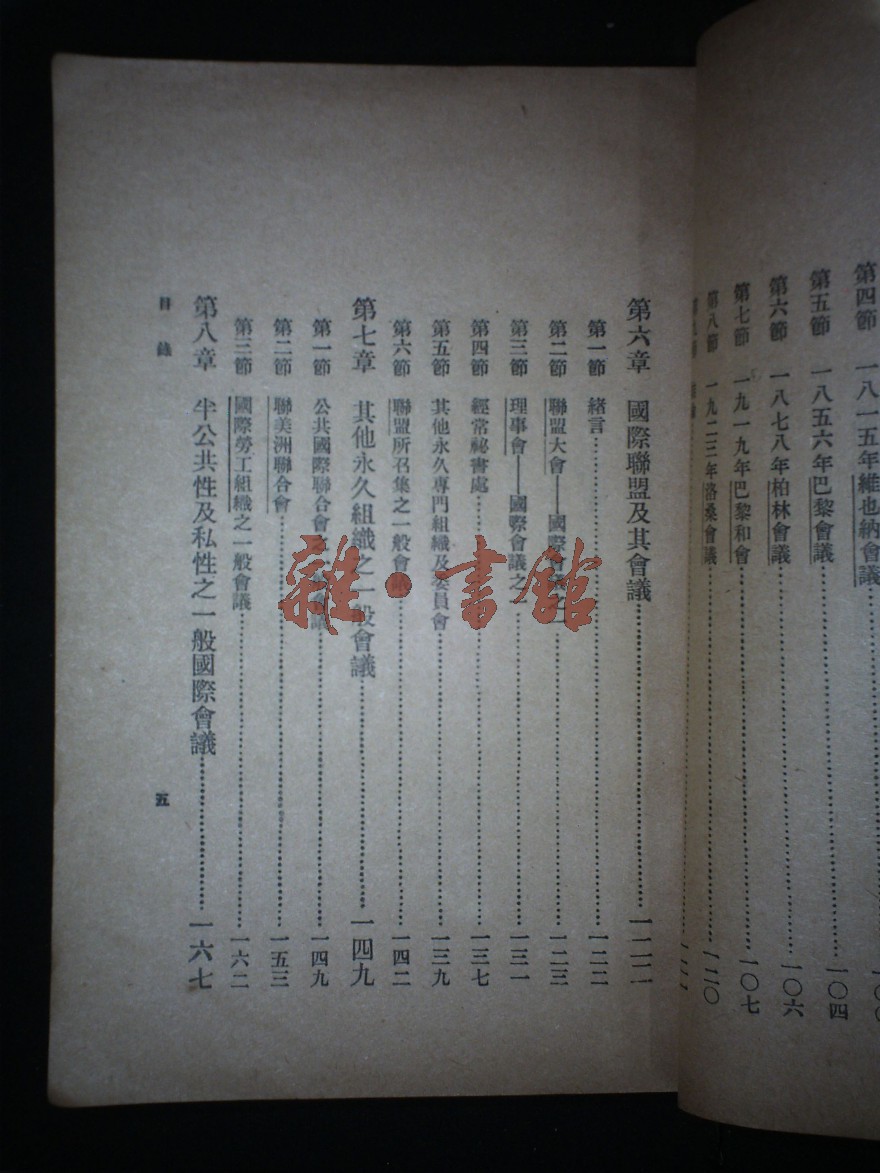 第四節 一八一五年維也納會議
第五節 一八五六年巴黎會議 一〇四
第六節 一八七八年柏林會議 一〇六
第七節 一九一九年巴黎和會 一〇七
第八節 一九二三年洛桑會議 一二〇
第六章 國際聯盟及其會議 一二二
第一節 緒言 一二二
第二節 聯盟大會——國際會 一二三
第三節 理事會——國際會議之一 一三一
第四節 經常祕書處 一三七
第五節 其他永久專門組織及委員會 一三九
第六節 聯盟所召集之一般會議 一四二
第七章 其他永久組織之一般會議 一四九
第一節 公共國際聯合會之一般會議 一四九
第二節 聯美洲聯合會 一五三
第三節 國際勞工組織之一般會議 一六二
第八章 半公共性及私性之一般國際會議 一六七
目錄
五
雜·書館